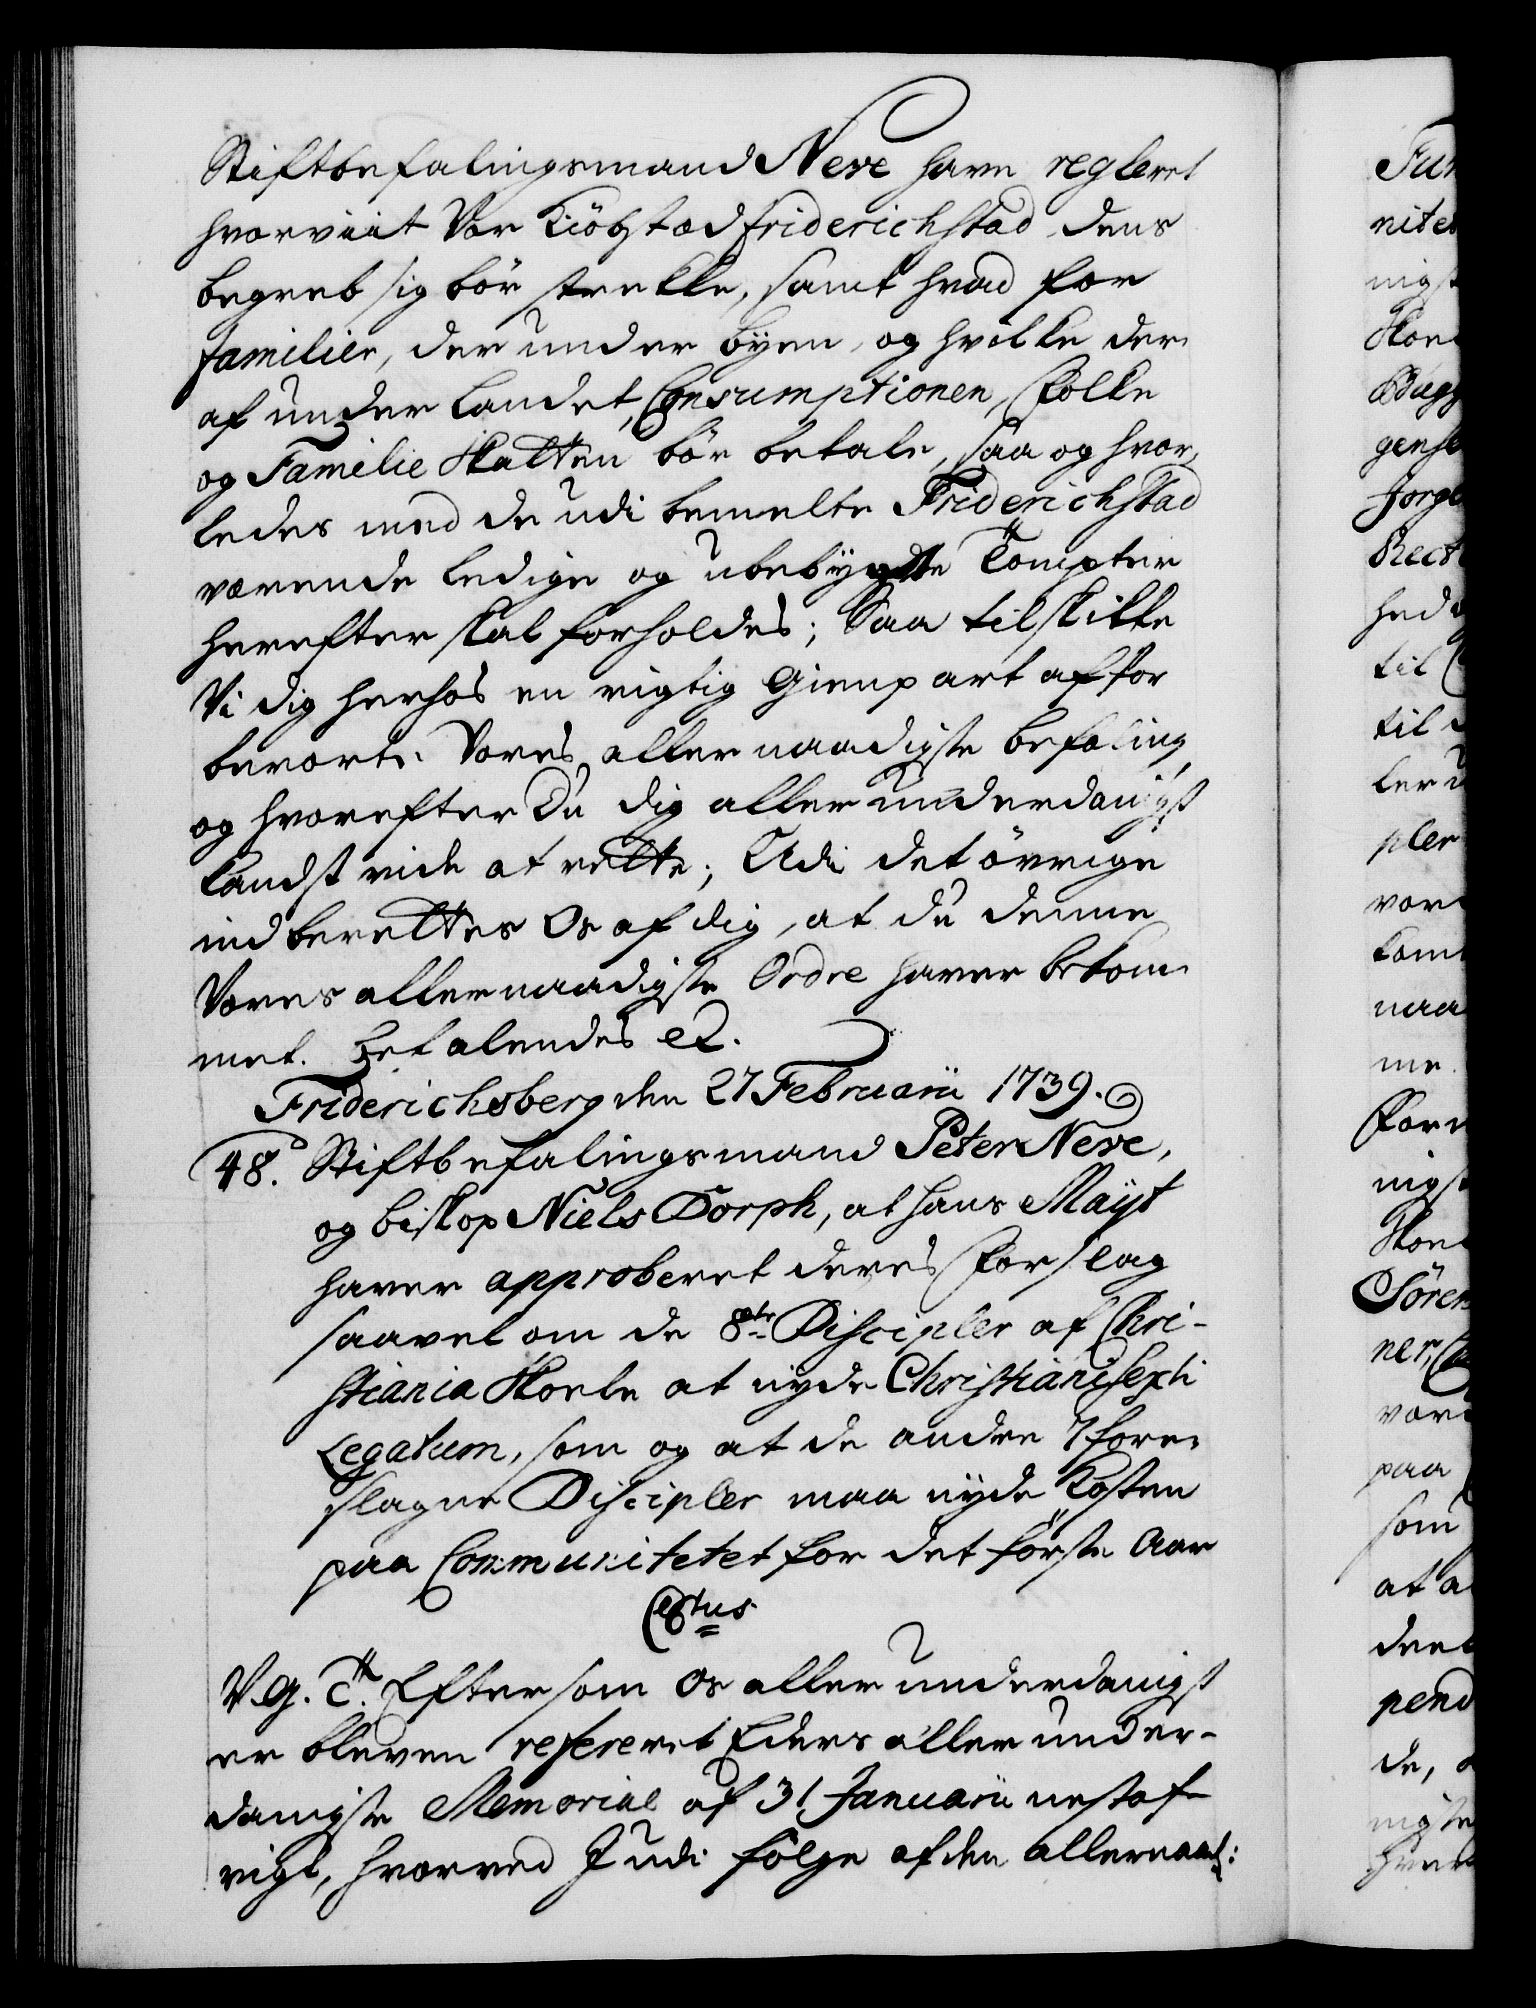 Stiftbefalingsmand Neve have regleret
hvorviit Vor Kiöbstæd Friderichstad dens
begreb sig bör strekke, samt hvad for
familier, der under byen, og hvilke der
af under Landet, Consumptionen, Folke
og Familie Skatten bör betale, saa og hvor,
ledes med de udi bemelte Friderichstad
værende ledige og ubebygte Tompter
herefter skal forholdes; Saa tilskikke
Vi dig herhos en rigtig Gienpart af for
berørte Vores allernaadigste befaling,
og hvorefter Du dig allerunderdanigst
kandst vide at rette; Udi det övrige
indberettes Os af dig, at du denne
Vores allernaadigste Ordre haver bekom
met. Befalendes etc.
Friderichsberg den 27 Februarii 1739.
48. Stiftbefalingsmand Peter Neve,
og biskop Niels Dorph, at hans Mayt
haver approberet deres Forslag
saavel om de 8te Discipler af Chri-
stiania Skoele at nyde Christiani Sexti
Legatum, som og at de andre 7 fore-
slagne Discipler maa nyde Kosten
paa Communitetet for det förste Aar
C6tus
V. G. T. Eftersom Os allerunderdanigst
er bleven refereret Eders allerunder-
danigste Memorial af 31 Januarii nestaf-
vigt, hvorved I udi fölge af den allernaad: